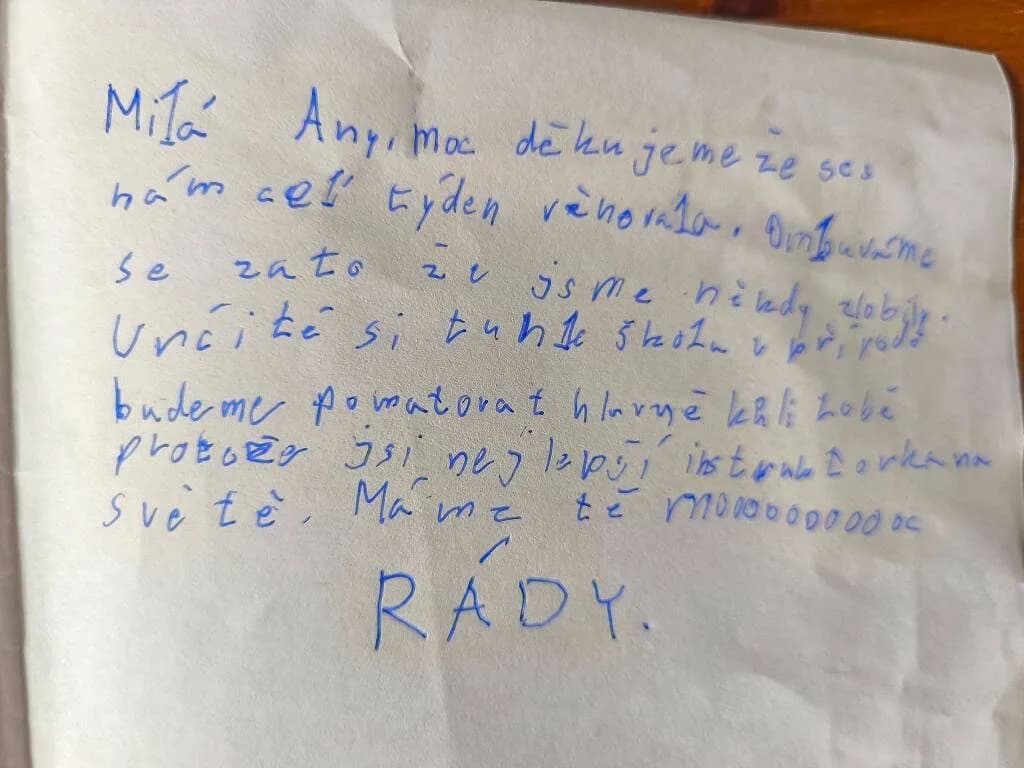 Milá Any, moc děkujeme že ses
nám celí týden věnovala. Omluváme
se zato že jsme někdy zlobily.
Určitě si tuhle školu v přírodě
budeme pomatovat hlavně kůli tobě
protože jsi nejlepší instruktorka na
světě. Máme tě mooooooooooc
RÁDY.